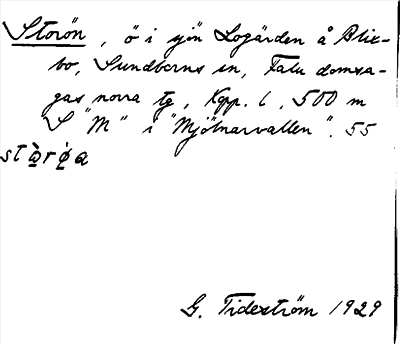 Storön, ö i sjön Logärden å Blix-
bo, Sundborns sn, Falu domsa-
gas norra tg, Kopp. l, 500 m
S "M" i "Mjölnarvallen". 55
stὰrǿa
G. Tideström 1929